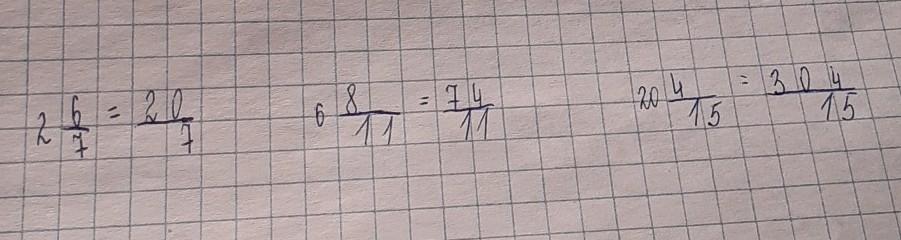 2 6/7 = 20/7   6 8/11 = 74/11   20 4/15 = 304/15